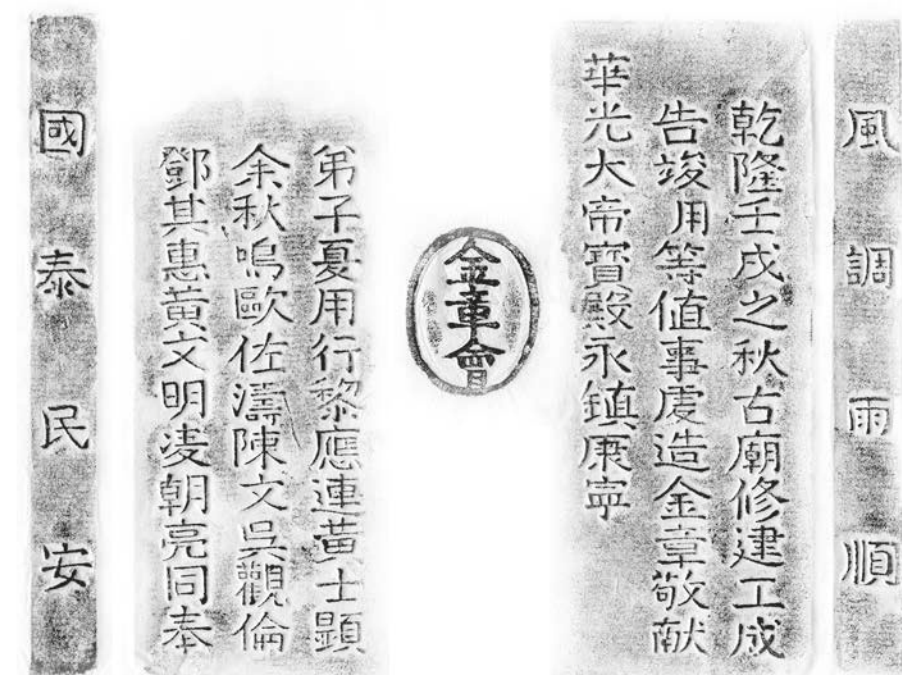 風調雨順
乾隆壬戌之秋古廟修建工成
告竣用等值事虔造金章敬献
華光大帝寳殿永鎮康寜
金章會
弟子夏用行黎應連黄士顯
余秋鳴歐佐濤陳文吳觀倫
鄧其惠黄文明凌朝亮同奉
國泰民安